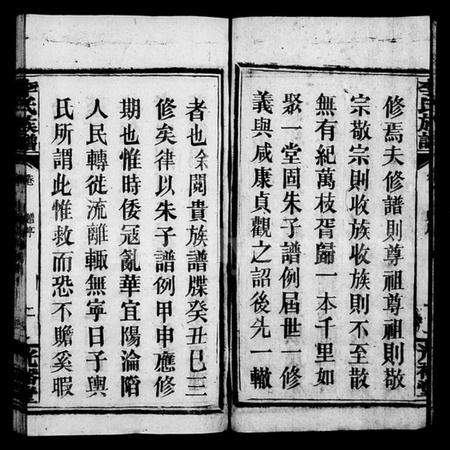 修焉夫修譜則尊祖尊祖則敬
宗敬宗則收族收族則不至散
無有紀萬枝胥歸一本千里如
聚一堂固朱子譜例屆世一修
義與咸康貞觀之詔後先一轍
者也余閱貴族譜牒癸丑已三
修矣律以朱子譜例甲申應修
期也惟時倭寇亂華宜陽淪陷
人民轉徙流離輒無寧日子輿
氏所謂此惟救而恐不贍奚暇
李氏族譜
卷